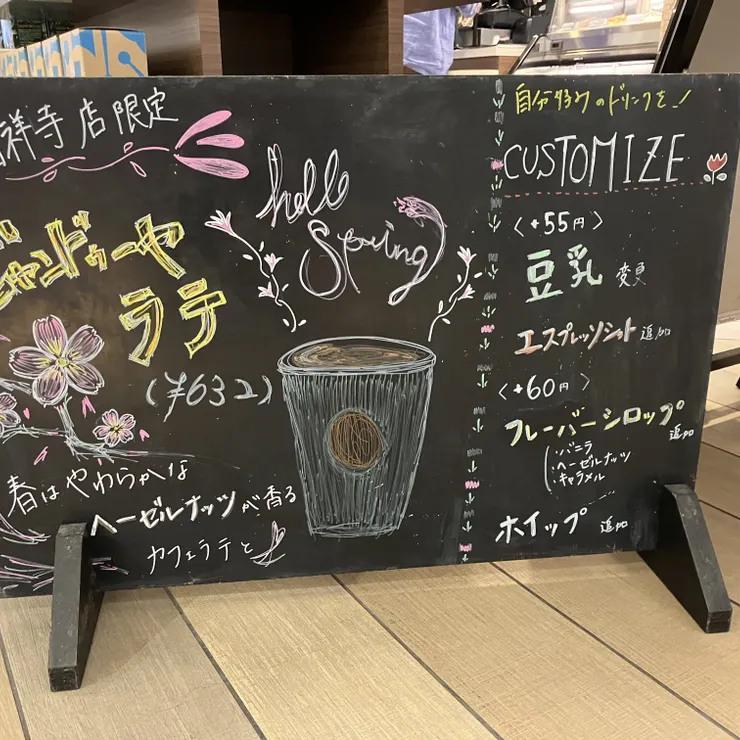 祥寺店限定
hello
Spring
ジャンドゥーヤ
ラテ
(¥632)
春はやわらかな
ヘーゼルナッツが香る
カフェラテと
自分好みのドリンクを!
CUSTOMIZE
〈+55円〉
豆乳 変更
エスプレッソショット 追加
〈+60円〉
フレーバーシロップ 追加
・バニラ
・ヘーゼルナッツ
・キャラメル
ホイップ 追加